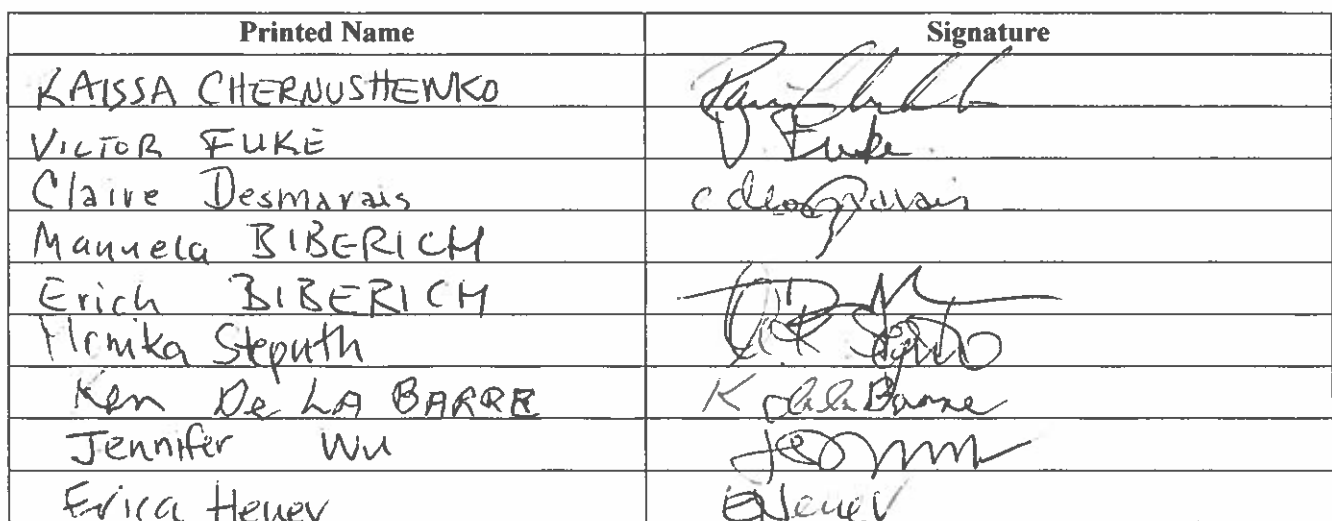 Printed Name Signature
KAISSA CHERNUSHENKO
VICTOR FUKE V Fuke
Claire Desmarais C desmarais
Manuela BIBERICH
Erich BIBERICH
Monika Steputh
Ken De LA BARRE K de la Barre
Jennifer Wu
Erica Heuer EHeuer